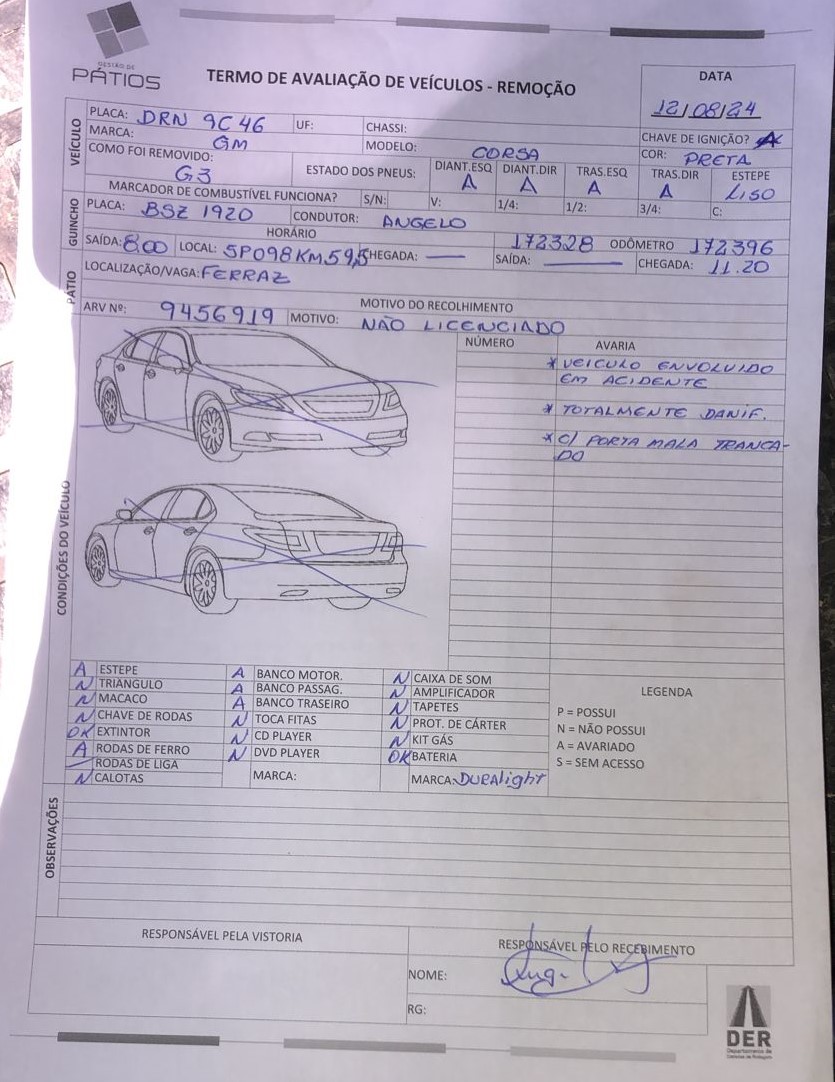 GESTÃO DE
PÁTIOS
TERMO DE AVALIAÇÃO DE VEÍCULOS - REMOÇÃO
DATA
12/08/24
VEÍCULO
PLACA: DRN 9C46 UF: CHASSI: CHAVE DE IGNIÇÃO? A
MARCA: GM MODELO: CORSA COR: PRETA
COMO FOI REMOVIDO: G3 ESTADO DOS PNEUS: DIANT.ESQ A DIANT.DIR A TRAS.ESQ A TRAS.DIR A ESTEPE LISO
MARCADOR DE COMBUSTÍVEL FUNCIONA? S/N: V: 1/4: 1/2: 3/4: C:
GUINCHO
PLACA: BSZ 1920 CONDUTOR: ANGELO
HORÁRIO 172328 ODÔMETRO 172396
SAÍDA: 8:00 LOCAL: SP098KM59,5 CHEGADA: — SAÍDA: — CHEGADA: 11.20
PÁTIO
LOCALIZAÇÃO/VAGA: FERRAZ
MOTIVO DO RECOLHIMENTO
ARV Nº: 9456919 MOTIVO: NÃO LICENCIADO
CONDIÇÕES DO VEÍCULO
NÚMERO AVARIA
* VEICULO ENVOLVIDO
EM ACIDENTE
* TOTALMENTE DANIF.
* C/ PORTA MALA TRANCA-
DO
A ESTEPE A BANCO MOTOR. N CAIXA DE SOM
N TRIANGULO A BANCO PASSAG. N AMPLIFICADOR
N MACACO A BANCO TRASEIRO N TAPETES
N CHAVE DE RODAS N TOCA FITAS N PROT. DE CÁRTER
OK EXTINTOR N CD PLAYER N KIT GÁS
A RODAS DE FERRO N DVD PLAYER OK BATERIA
— RODAS DE LIGA MARCA: MARCA: DURAlight
N CALOTAS
LEGENDA
P = POSSUI
N = NÃO POSSUI
A = AVARIADO
S = SEM ACESSO
OBSERVAÇÕES
RESPONSÁVEL PELA VISTORIA RESPONSÁVEL PELO RECEBIMENTO
NOME:
RG:
DER